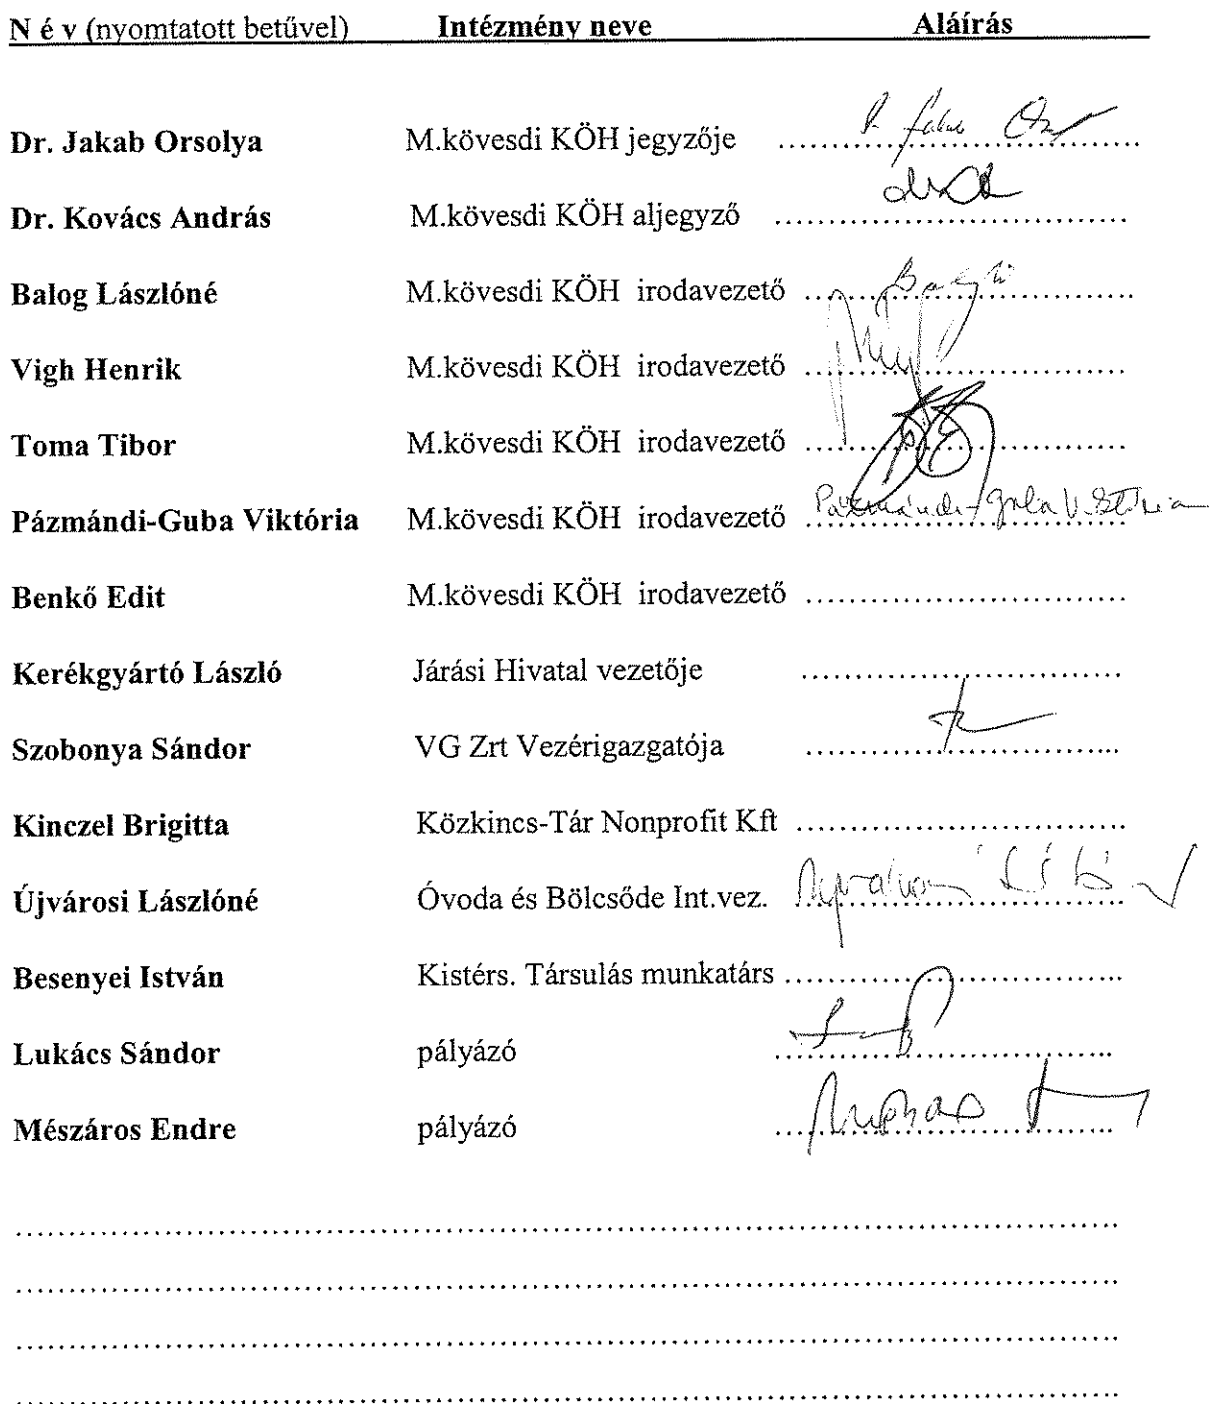 N é v (nyomtatott betűvel) Intézmény neve Aláírás
Dr. Jakab Orsolya M.kövesdi KÖH jegyzője ....................................
Dr. Kovács András M.kövesdi KÖH aljegyző ....................................
Balog Lászlóné M.kövesdi KÖH irodavezető ....................................
Vigh Henrik M.kövesdi KÖH irodavezető ....................................
Toma Tibor M.kövesdi KÖH irodavezető ....................................
Pázmándi-Guba Viktória M.kövesdi KÖH irodavezető Pázmándi-Guba Viktória
Benkő Edit M.kövesdi KÖH irodavezető ....................................
Kerékgyártó László Járási Hivatal vezetője ....................................
Szobonya Sándor VG Zrt Vezérigazgatója ....................................
Kinczel Brigitta Közkincs-Tár Nonprofit Kft ....................................
Újvárosi Lászlóné Óvoda és Bölcsőde Int.vez. ....................................
Besenyei István Kistérs. Társulás munkatárs ....................................
Lukács Sándor pályázó ....................................
Mészáros Endre pályázó ....................................